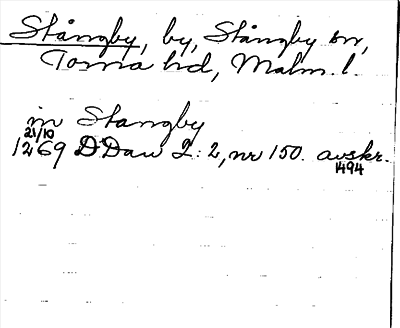 Stångby, by, Stångby sn,
Torna hd, Malm. l.
in Stangby
21/10
1269 DDan 2:2, nr 150. avskr.
1494